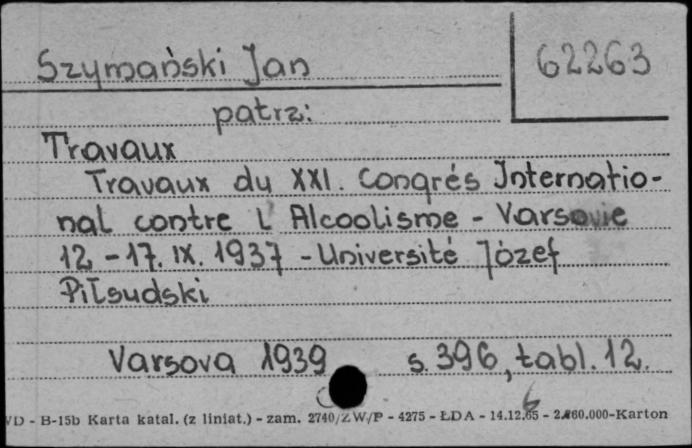 Szymański Jan
62263
patrz:
Travaux
Travaux du XXI. Congrés Internatio-
nal contre L'Alcoolisme - Varsovie
12 - 17. IX. 1937 - Université Józef
Piłsudski
Varsova 1939 s. 396, tabl. 12.
VD - B-15b Karta katal. (z liniat.) - zam. 2740/ZW/P - 4275 - ŁDA - 14.12.65 - 2.260.000-Karton